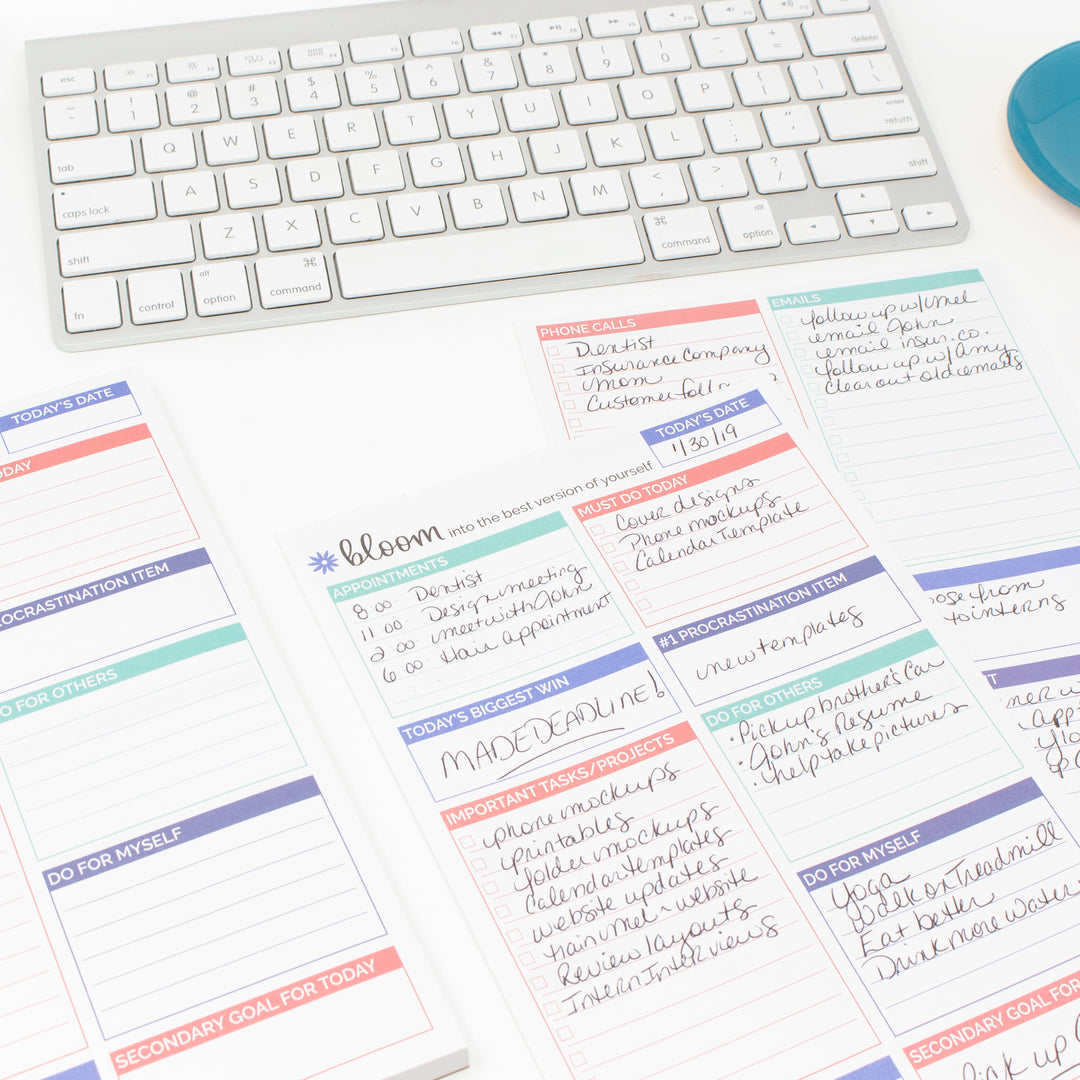 esc F1 F2 F3 F4 F5 F6 F7 F8 F9 F10 F11 F12
~ ` ! 1 @ 2 # 3 $ 4 % 5 ^ 6 & 7 * 8 ( 9 ) 0 _ - + = delete
tab Q W E R T Y U I O P { [ } ] | \
caps lock A S D F G H J K L : ; " ' enter return
shift Z X C V B N M < , > . ? / shift
fn control alt option ⌘ command ⌘ command alt option
PHONE CALLS
Dentist
Insurance Company
Mom
Customer
EMAILS
follow up w/ Mel
email John
email insur. co.
follow up w/ Amy
clear out old emails
TODAY'S DATE
1/30/19
bloom into the best version of yourself
APPOINTMENTS
8:00 Dentist
11:00 Design meeting
2:00 meet with John
6:00 Hair appointment
TODAY'S BIGGEST WIN
MADE DEADLINE!
IMPORTANT TASKS/PROJECTS
phone mockups
printables
folder mockups
Calendar templates
website updates
train Mel ~ website
Review layouts
Intern Interviews
MUST DO TODAY
Cover designs
Phone mockups
Calendar Template
#1 PROCRASTINATION ITEM
new templates
DO FOR OTHERS
• Pick up brother's Car
• John's Resume
• help take pictures
DO FOR MYSELF
Yoga
Walk on Treadmill
Eat better
Drink more water
SECONDARY GOAL FOR
Pick up
from
to interns
TODAY'S DATE
ODAY
ROCRASTINATION ITEM
DO FOR OTHERS
DO FOR MYSELF
SECONDARY GOAL FOR TODAY